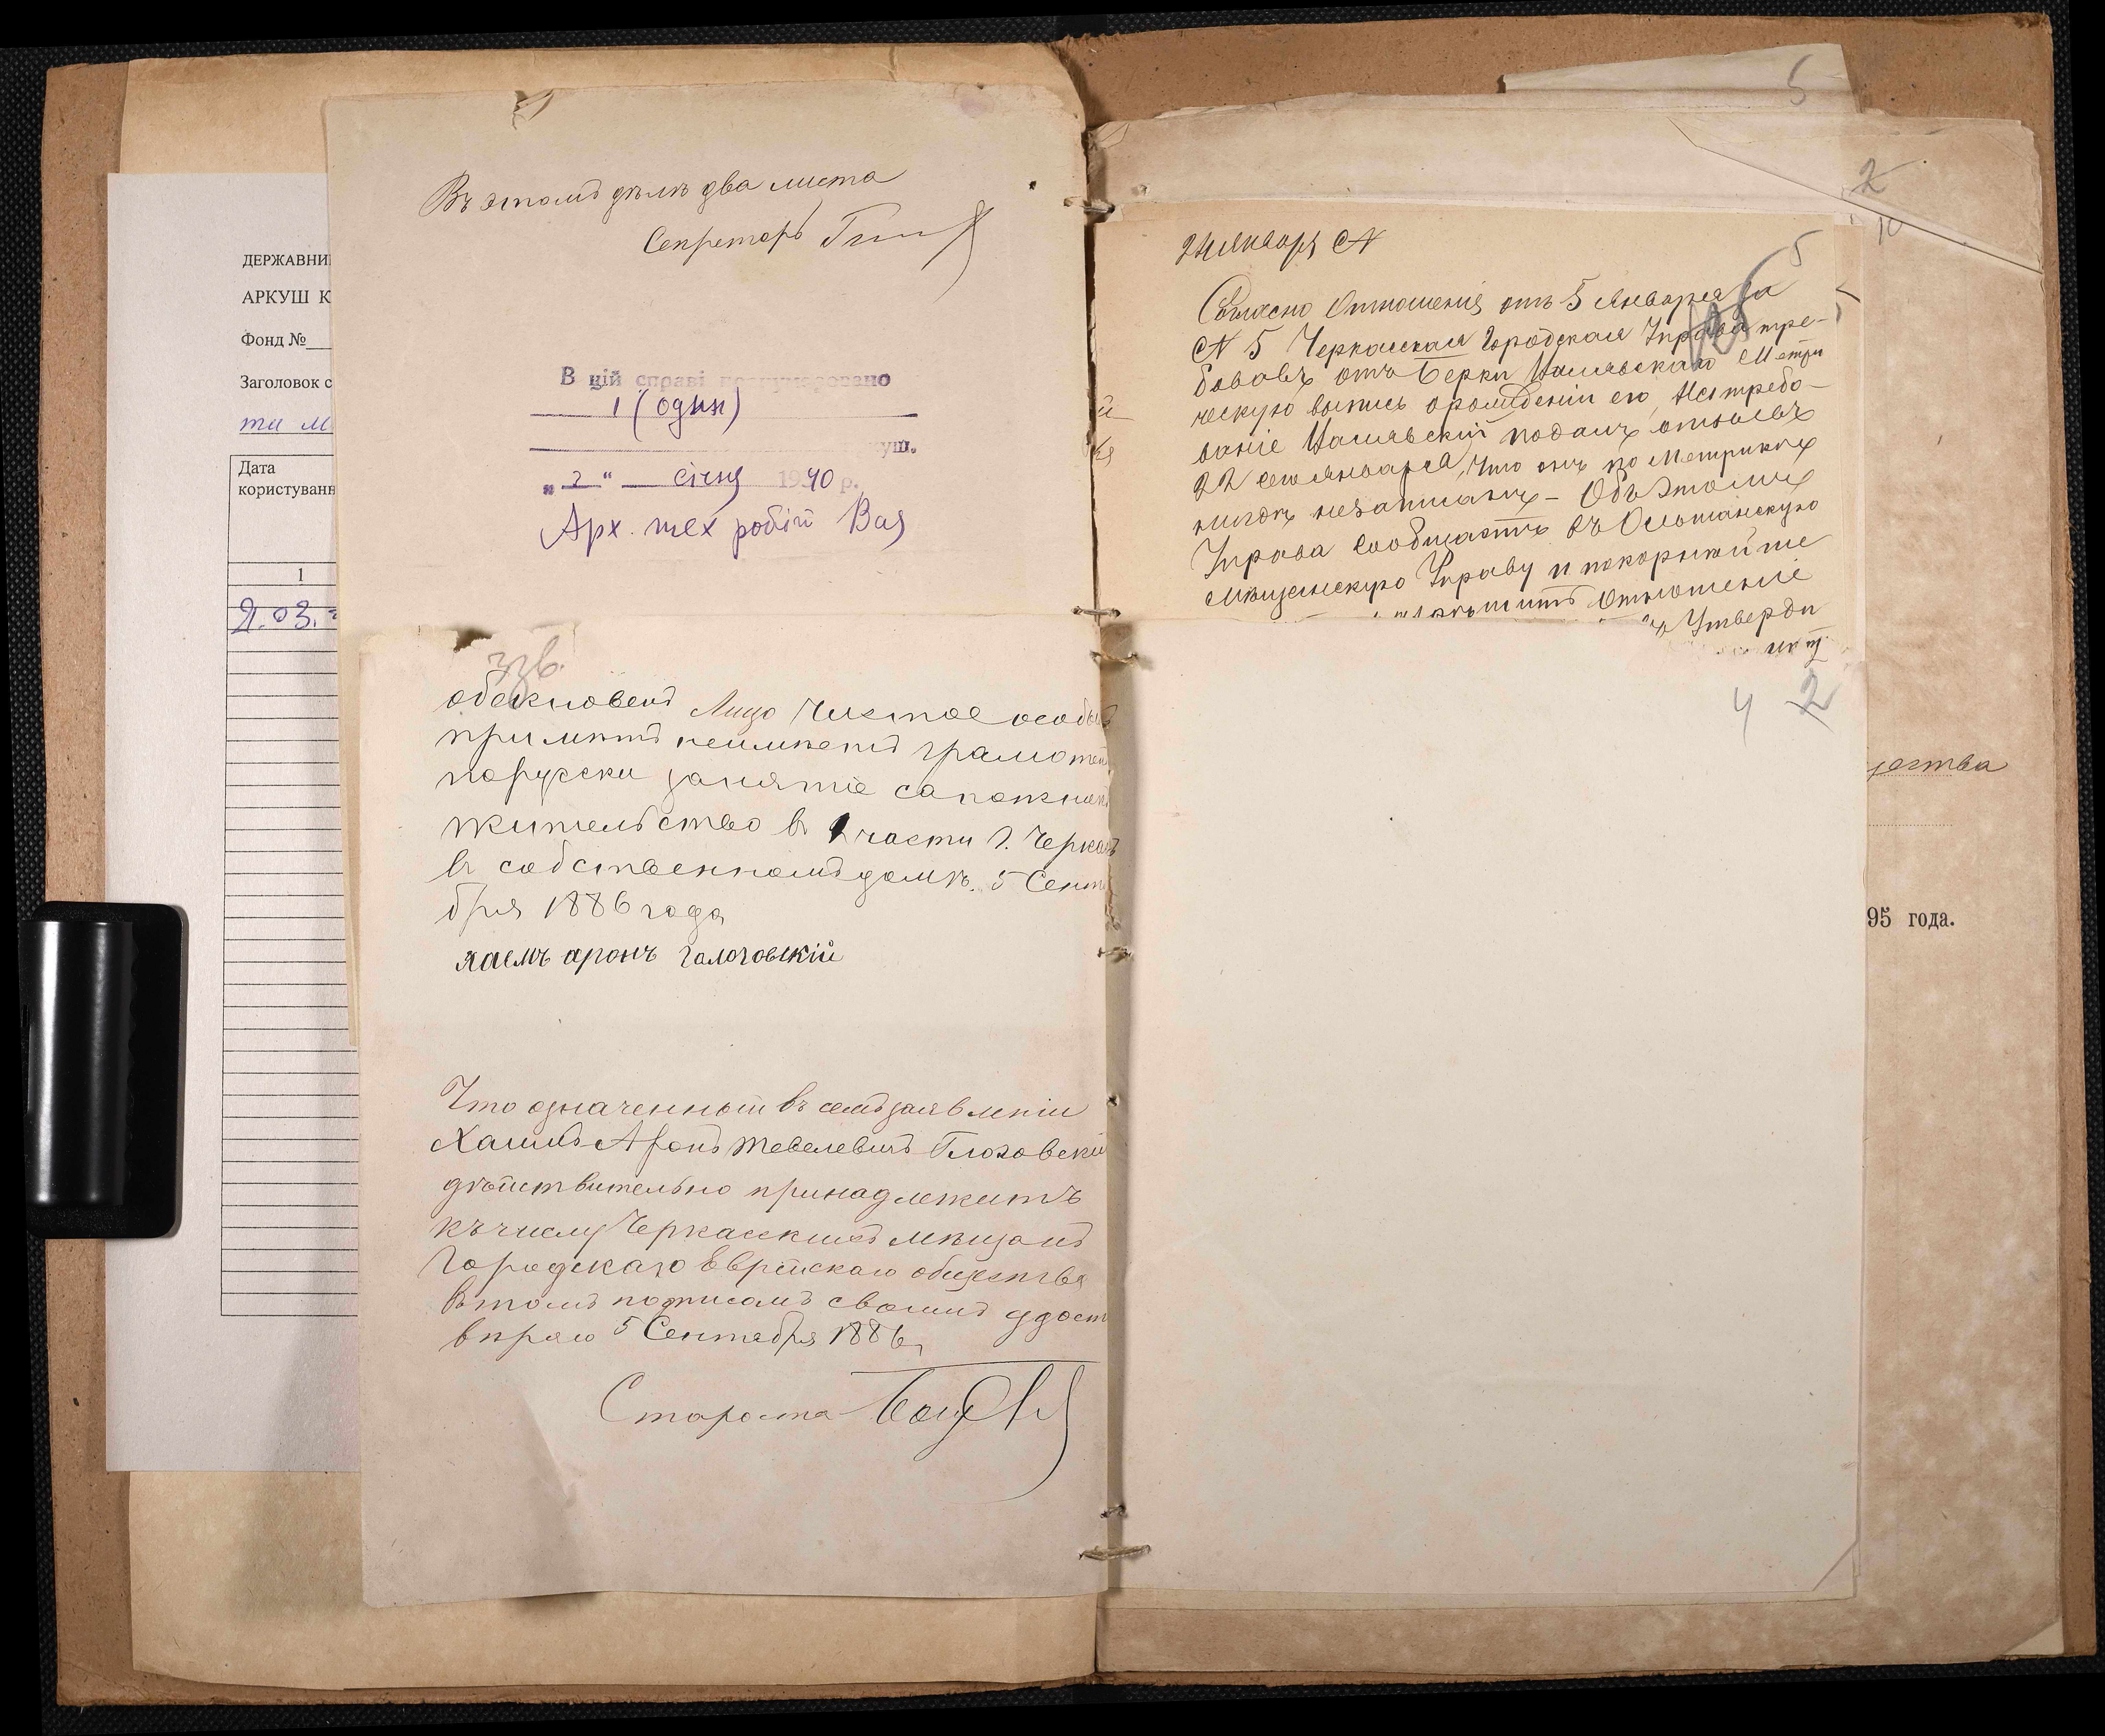 ДЕРЖАВНИ
АРКУШ К
Фонд №
Заголовок с
ти м
Дата
користуванн
1
2.03.
Въ этомъ дѣлѣ два листа
Секретарь
В цій справі пронумеровано
1 (один)
уш.
„2“ січня 1940 р.
Арх. тех робіт
ззв.
обекновенъ Лицо Чистое особы
примѣтъ неимѣетъ грамотен
порусски занятіе сапожник
жительство в 2 части г. Черкас
в собственномъ домѣ. 5 Сентя
бря 1886 года
хаемъ аронъ галоговскій
Что означенный въ семъ заявленіи
Хаимъ Аронъ Тевелевичъ Глоговскій
дѣйствительно принадлежитъ
къ числу Черкасскихъ мѣщанъ
Городскаго Еврейскаго общества
Втомъ подписомъ своимъ удост
вѣряю 5 Сентября 1886
Староста
й
ка
24 января №
Согласно Отношенія отъ 5 Января за
№ 5 Черкасская Городская Управа тре-
бовавъ отъ Берки Метри
ческую выпись орожденіи его, Наетребо-
ваніе подалъ отзывъ
22 сего Января, что онъ по Метрикѣ
нигдѣ незаписанъ - Объ Этомъ
Управа сообщаетъ въ Ольшанскую
мѣщанскую Управу и покорнѣйше
Отношеніе
Утверди
5
5
2
10
4 2
щества
95 года.